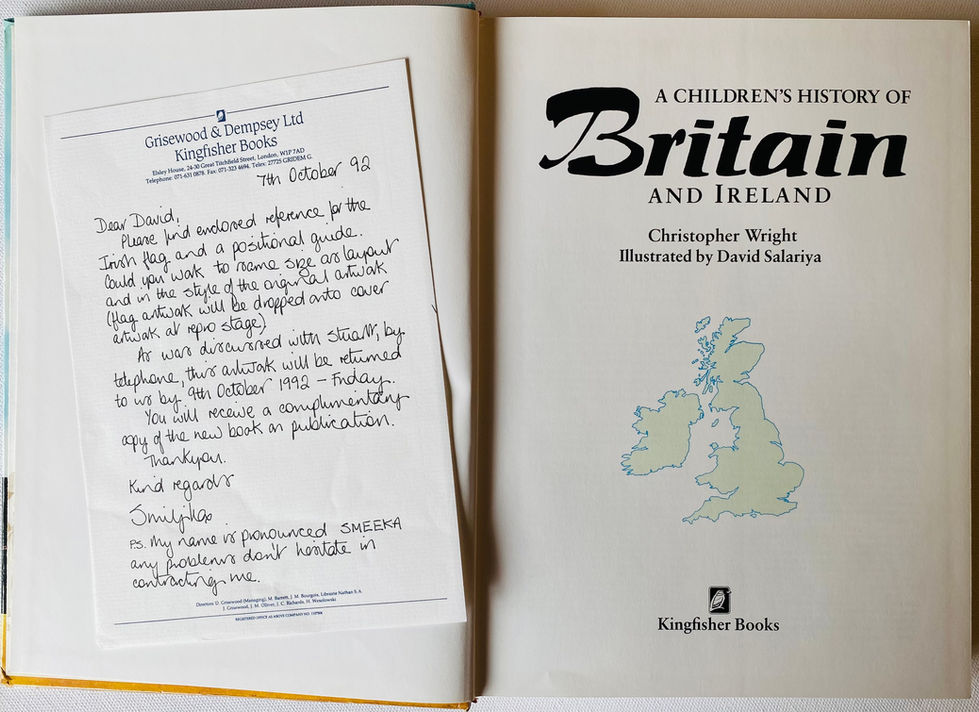 Grisewood & Dempsey Ltd
Kingfisher Books
Elsley House, 24-30 Great Titchfield Street, London, W1P 7AD
Telephone: 071-631 0878. Fax: 071-323 4694. Telex: 27725 GRIDEM G.
7th October 92
Dear David,
Please find enclosed reference for the
Irish flag and a positional guide.
Could you work to same size as layout
and in the style of the original artwork
(flag artwork will be dropped onto cover
artwork at repro stage)
As was discussed with Stuart, by
telephone, this artwork will be returned
to us by 9th October 1992 – Friday.
You will receive a complimentary
copy of the new book on publication.
Thankyou.
Kind regards
Smiljka
PS. My name is pronounced SMEEKA
any problems don't hesitate in
contracting me.
Directors: D. Grisewood (Managing), M. Barrett, J. M. Bourgois, Librairie Nathan S.A.
J. Grisewood, J. M. Olliver, J. C. Richards, H. Wesolowski
REGISTERED OFFICE AS ABOVE COMPANY NO.
A CHILDREN'S HISTORY OF
Britain
AND IRELAND
Christopher Wright
Illustrated by David Salariya
Kingfisher Books